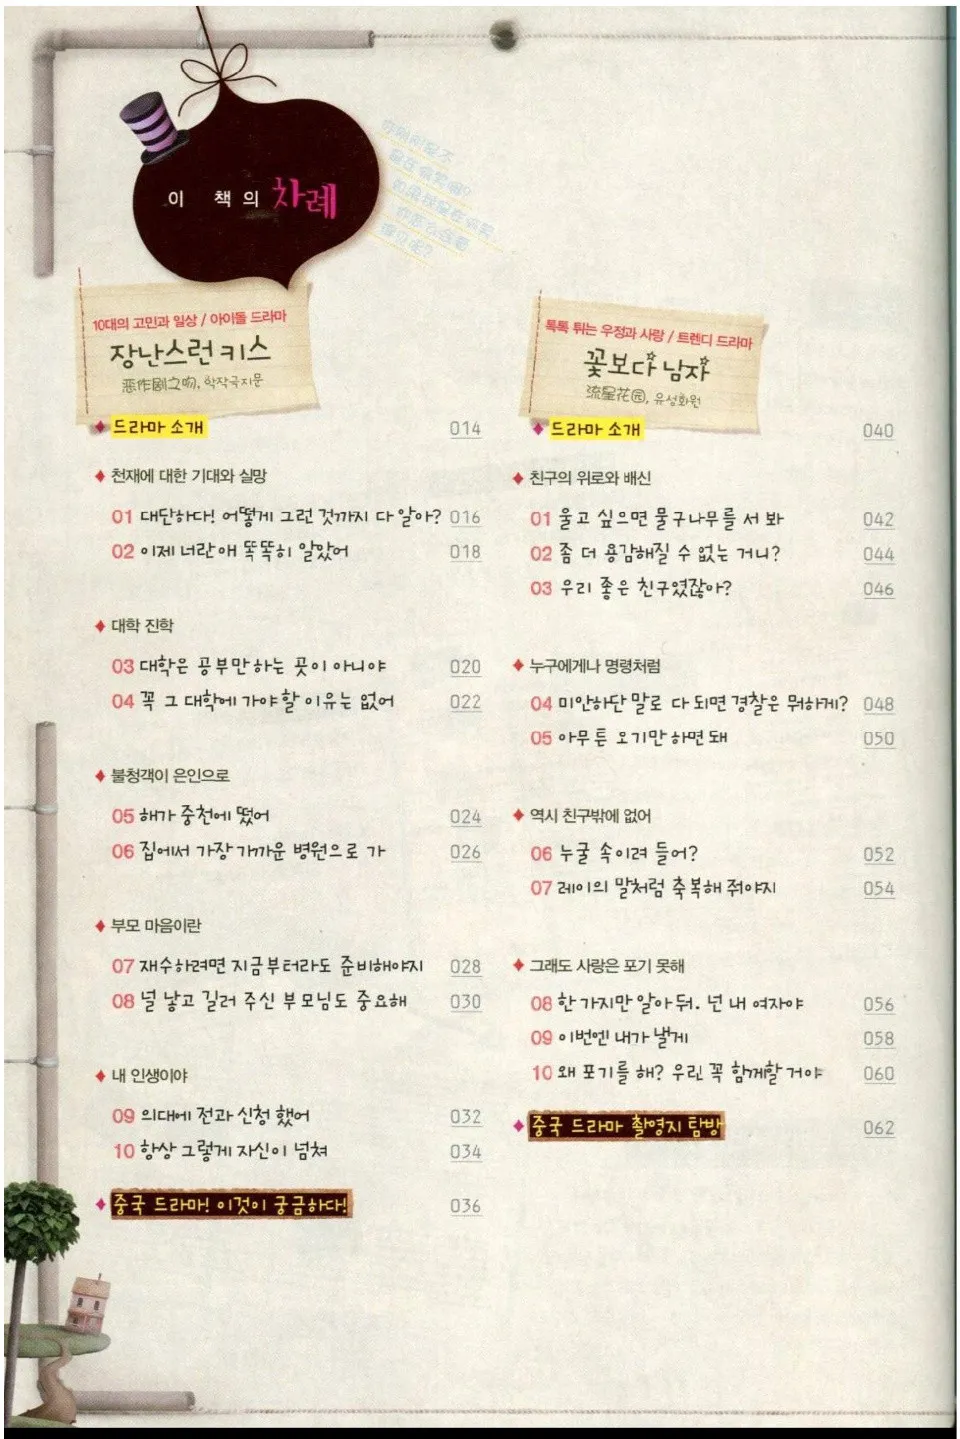 이 책의 차례
10대의 고민과 일상 / 아이돌 드라마
장난스런 키스
恶作剧之吻, 학작극지문
드라마 소개 014
천재에 대한 기대와 실망
01 대단하다! 어떻게 그런 것까지 다 알아? 016
02 이제 너란 애 똑똑히 알았어 018
대학 진학
03 대학은 공부만 하는 곳이 아니야 020
04 꼭 그 대학에 가야 할 이유는 없어 022
불청객이 은인으로
05 해가 중천에 떴어 024
06 집에서 가장 가까운 병원으로 가 026
부모 마음이란
07 재수하려면 지금부터라도 준비해야지 028
08 널 낳고 길러 주신 부모님도 중요해 030
내 인생이야
09 의대에 전과 신청 했어 032
10 항상 그렇게 자신이 넘쳐 034
중국 드라마! 이것이 궁금하다! 036
톡톡 튀는 우정과 사랑 / 트렌디 드라마
꽃보다 남자
流星花园, 유성화원
드라마 소개 040
친구의 위로와 배신
01 울고 싶으면 물구나무를 서 봐 042
02 좀 더 용감해질 수 없는 거니? 044
03 우리 좋은 친구였잖아? 046
누구에게나 명령처럼
04 미안하단 말로 다 되면 경찰은 뭐하게? 048
05 아무튼 오기만 하면 돼 050
역시 친구밖에 없어
06 누굴 속이려 들어? 052
07 레이의 말처럼 축복해 줘야지 054
그래도 사랑은 포기 못해
08 한 가지만 알아 둬. 넌 내 여자야 056
09 이번엔 내가 낼게 058
10 왜 포기를 해? 우린 꼭 함께할 거야 060
중국 드라마 촬영지 탐방 062